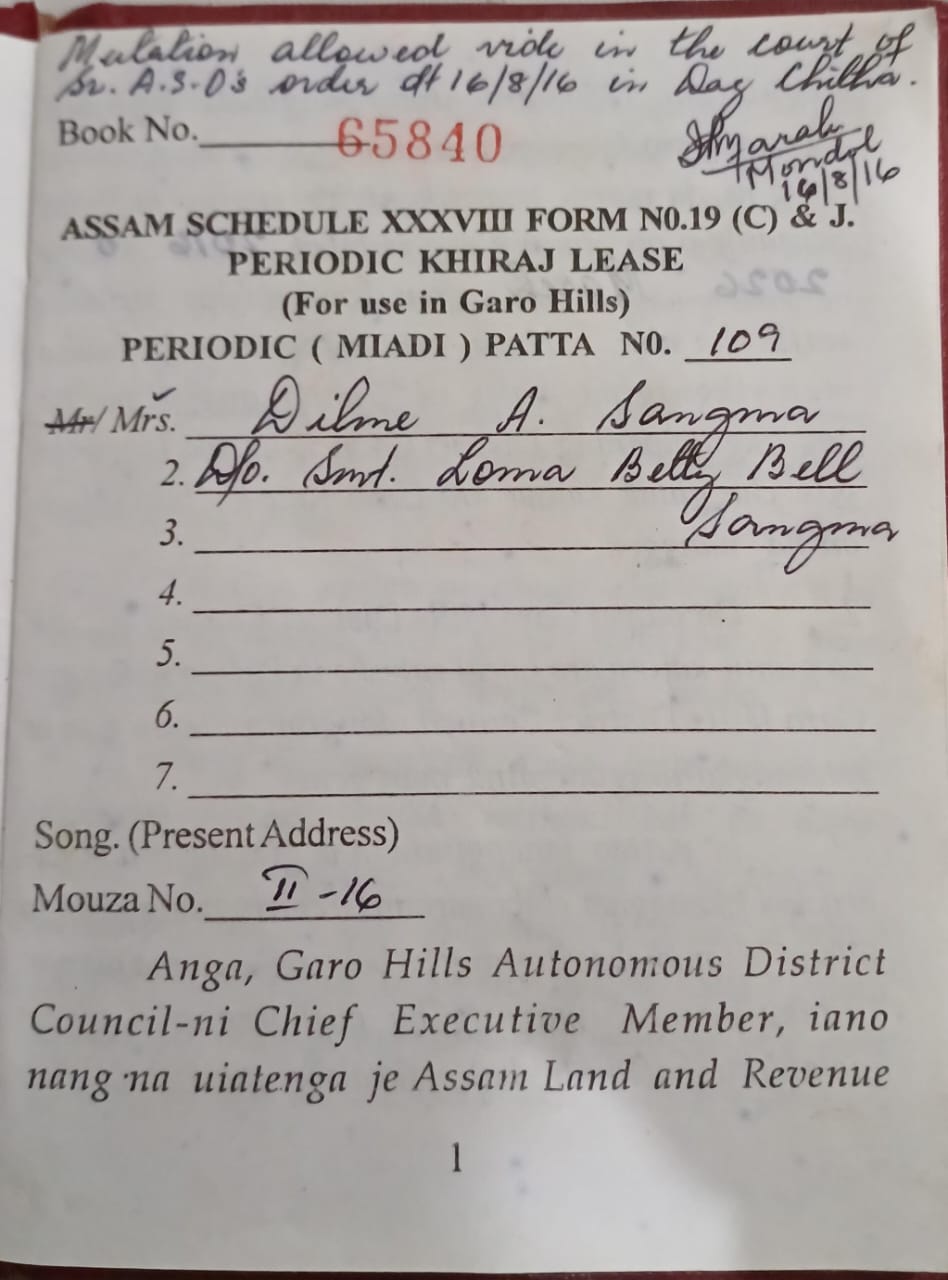 Mutation allowed vide in the court of
Sr. A.S.O's order dt 16/8/16 in Dag Chitha.
Book No. 65840
Mondol
16/8/16
ASSAM SCHEDULE XXXVIII FORM N0.19 (C) & J.
PERIODIC KHIRAJ LEASE
(For use in Garo Hills)
PERIODIC ( MIADI ) PATTA N0. 109
Mr/ Mrs. Dilme A. Sangma
2. D/o. Smt. Loma Betty Bell
3. Sangma
4.
5.
6.
7.
Song. (Present Address)
Mouza No. II -16
Anga, Garo Hills Autonomous District
Council-ni Chief Executive Member, iano
nang·na uiatenga je Assam Land and Revenue
1